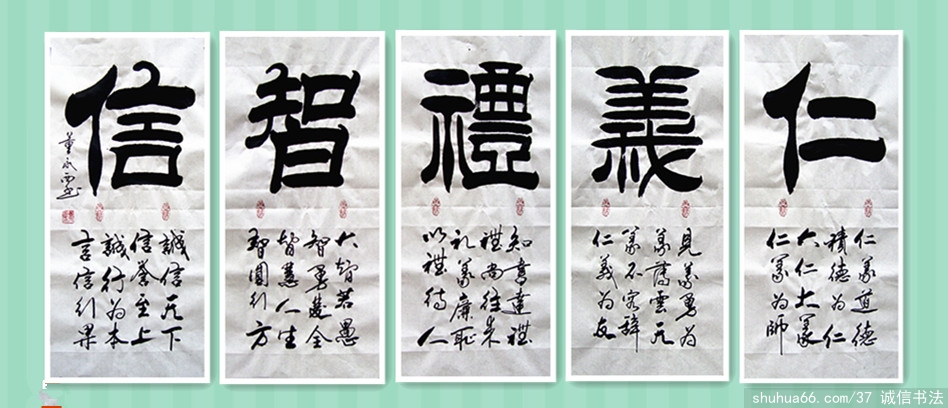 仁
仁義道德
積德為仁
大仁大義
仁義為師
義
見義勇為
義薄雲天
義不容辭
仁義為友
禮
知書達禮
禮尚往来
礼義廉恥
以禮待人
智
大智若愚
智勇雙全
智慧人生
智圓行方
信
誠信天下
信譽至上
誠行為本
言信行果
shuhua66.com/37 诚信书法